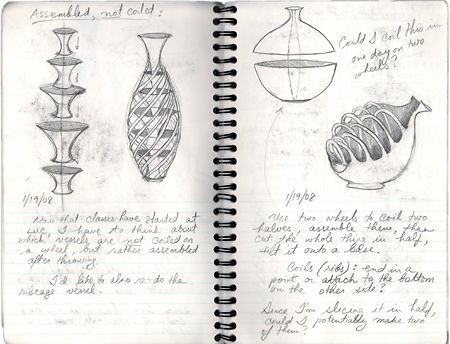 Assembled, not coiled:
1/19/08
Now that classes have started at
SIUC, I have to think about
which vessels are not coiled on
a wheel, but rather assembled
after throwing.
I'd like to also re-do the
ribcage vessel.
Could I coil this in
one day on two
wheels?
1/19/08
Use two wheels to coil two
halves, assemble them, then
cut the whole thing in half,
lift it onto a base.
Coils (ribs): end in a
point or attach to the bottom
on the other side?
Since I'm slicing it in half,
could I potentially make two
of them?